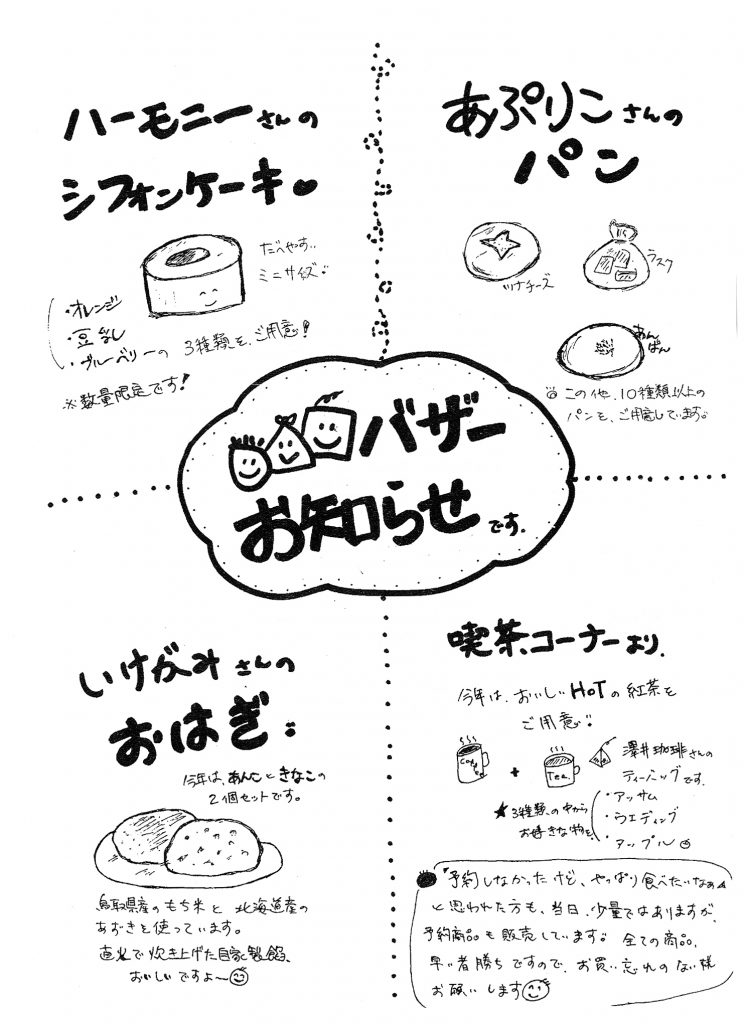 ハーモニーさんの
シフォンケーキ
たべやすい
ミニサイズ
・オレンジ
・豆乳
・ブルーベリーの 3種類を、ご用意!
※数量限定です!
あぷりこさんの
パン
ツナチーズ
ラスク
あんぱん
この他、10種類以上の
パンを、ご用意しています。
バザー
お知らせです。
いけがみさんの
おはぎ
今年は、あんこときなこの
2個セットです。
鳥取県産のもち米と 北海道産の
あずきを使っています。
直火で炊き上げた自家製餡、
おいしいですよ〜
喫茶コーナーより、
今年は、おいしいHOTの紅茶を
ご用意
Coffee
+
Tea
澤井珈琲さんの
ティーバッグです。
★3種類の中から
お好きな物を
・アッサム
・ウエディング
・アップル
"予約しなかったけど、やっぱり食べたいなぁ"
と思われた方も、当日、少量ではありますが、
予約商品も販売しています。全ての商品、
早い者勝ちですので、お買い忘れのない様
お願いします